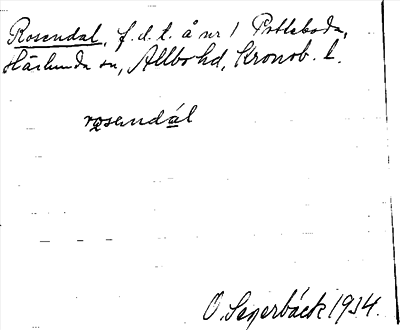 Rosendal, f.d.t. å nr 1 Pottaboda,
Härlunda sn, Allbo hd, Kronob. l.
rosendál
O. Segerbäck 1934.